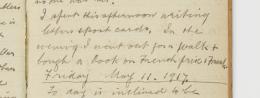 I spent this afternoon writing
letters & post cards. In the
evening I went out for a walk &
bought a book on French, price 1
Friday May 11. 1917
To day is inclined to be